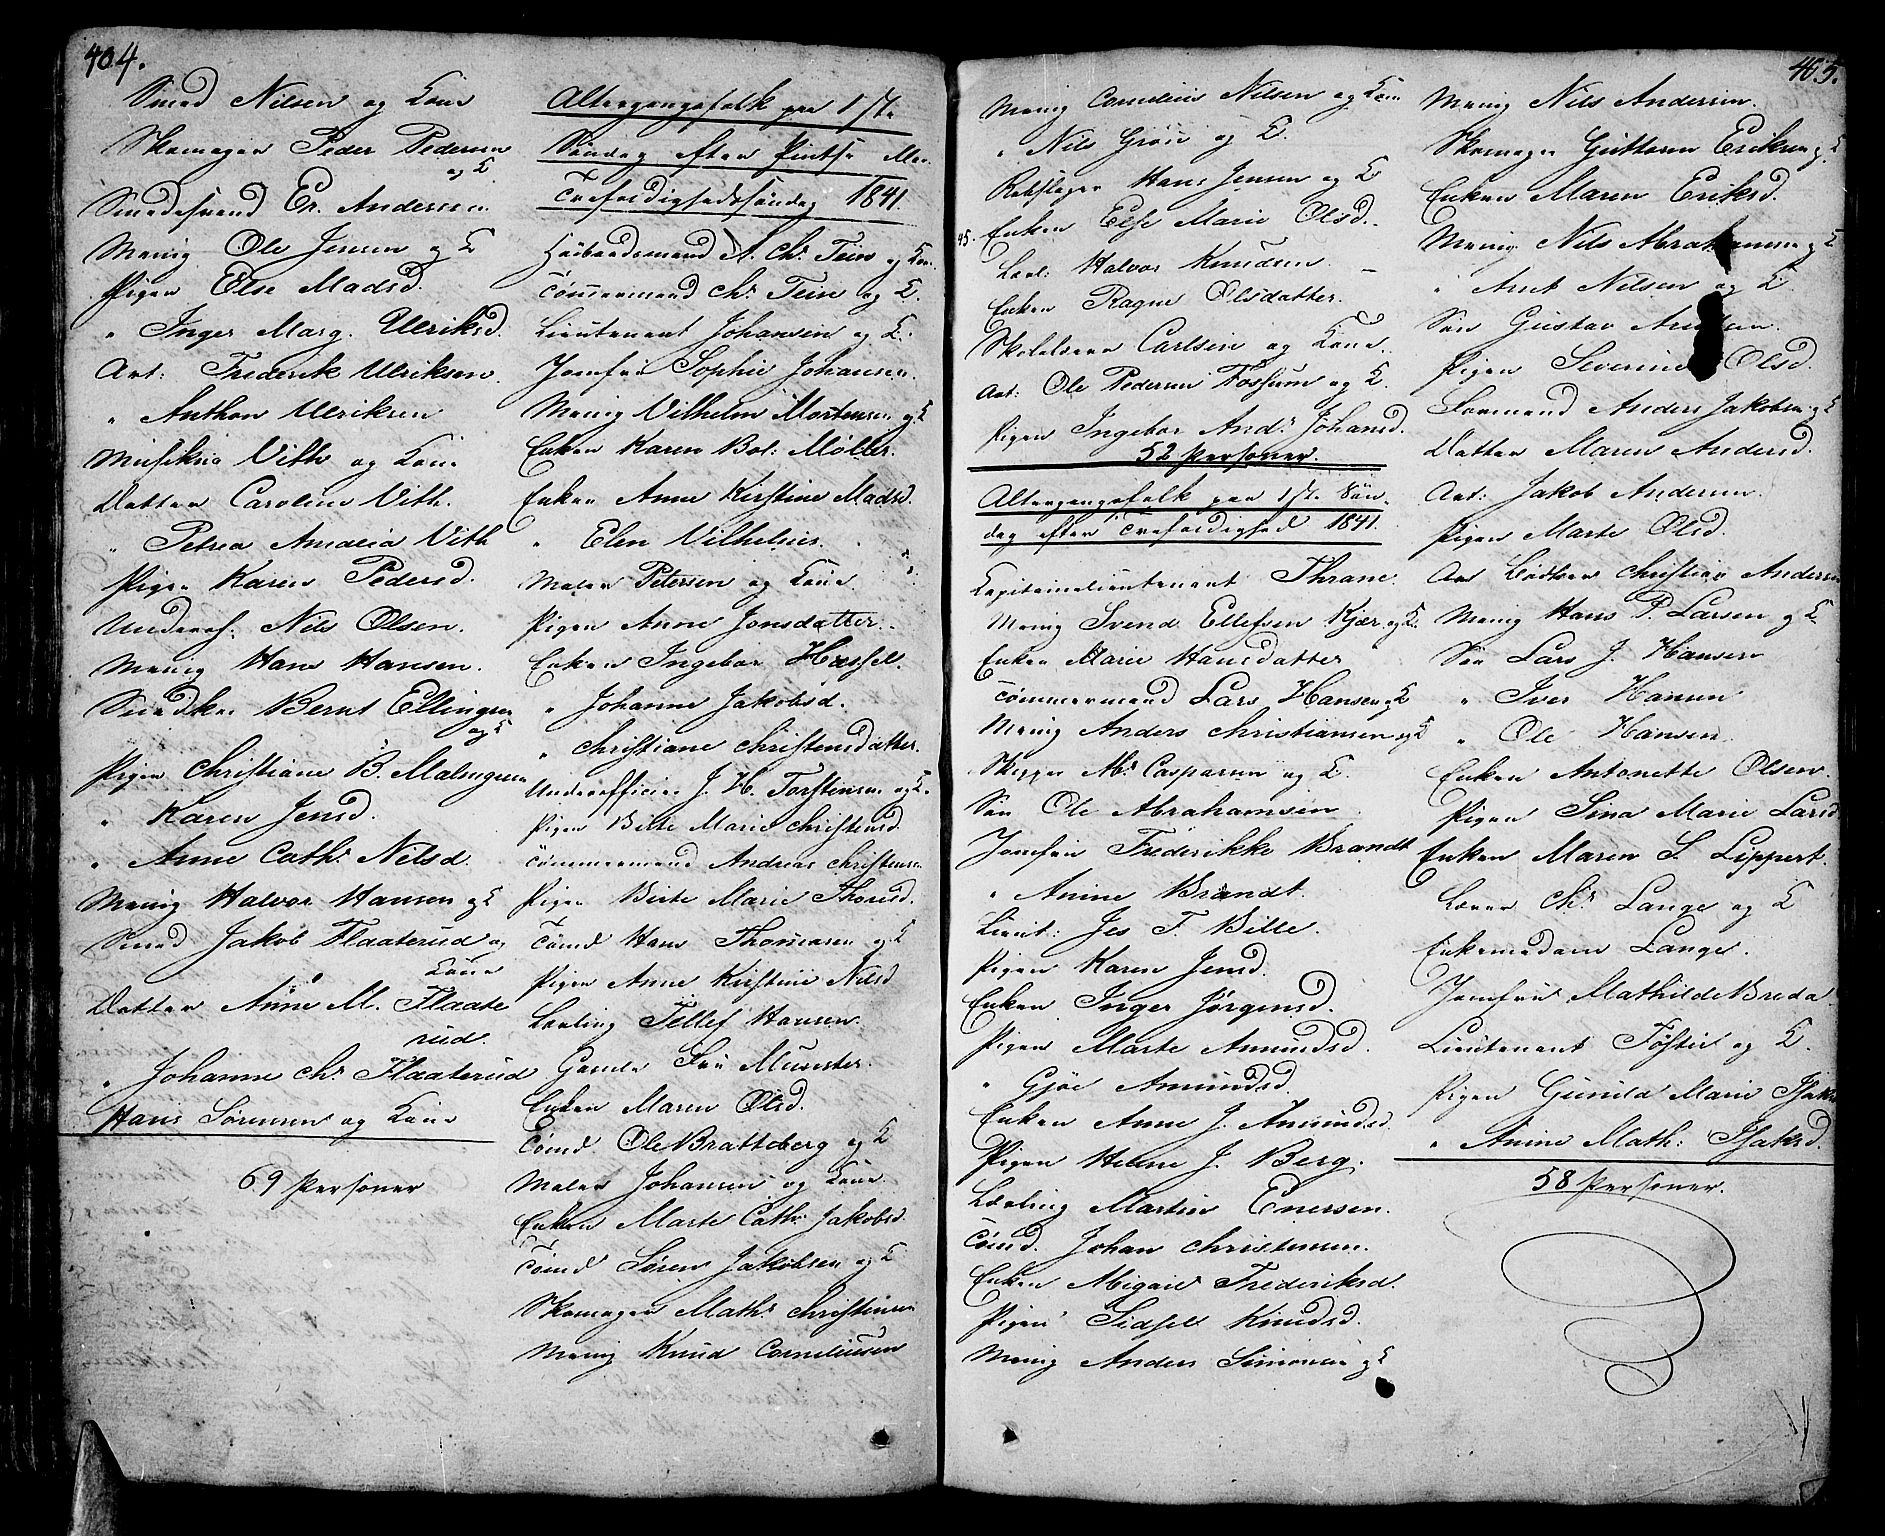 404.
Smed Nilsen og Kone
Skomager Peder Pedersen
og K
Smedesvend Er. Andersen
Menig Ole Jensen og K
Pigen Else Madsd.
" Inger Marg. Ulriksd.
Art: Frederik Ulriksen.
" Anthon Ulriksen
Musikus Vith og Kone
Datter Caroline Vith.
" Petrea Amalia Vith
Pigen Karen Pedersd.
Underof. Nils Olsen.
Menig Hans Hansen.
Bernt Ellingsen
og K
Pigen Christiane B. Malmgreen
" Karen Jensd.
" Anne Cathr. Nilsd.
Menig Halvor Hansen og K
Smed Jakob Flaaterud og
Kone
Datter Anne M. Flaate
rud.
" Johanne Chr. Flaaterud
Hans Sørensen og Kone
69 Personer
Altergangsfolk paa 1ste
Søndag efter Pintse
Trefoldighedssøndag 1841.
Chr. Tein og Kone
Tømmermand Chr. Tein og K.
Lieutenant Johansen og K.
Jomfru Sophie Johansen.
Menig Vilhelm Mortensen og K
Enken Karen Bol: Møller.
Enken Anne Kirstine Madsd.
" Elen Vilhelms.
Maler Petersen og Kone
Pigen Anne Jonsdatter.
Enken Ingebor Hassel.
" Johanne Jakobsd.
" Christiane Christensdatter.
Underofficier J. H. Torstensen og K.
Pigen Birte Marie Christensd.
Tømmermand Andreas Christensen
Pigen Birte Marie Thorsd.
Tømd Hans Thomasen og K
Pigen Anne Kirstine Nilsd
Lærling Tellef Hansen.
Gamle Fru Munster.
Enken Maren Olsd.
Tømd. Ole Bratteberg og K
Maler Johansen og Kone
Enken Marte Cathr. Jakobsd.
Tømd Søren Jakobsen og K
Skomager Mathr. Christensen
Menig Knud Corneliussen
405.
Menig Cornelius Nilsen og Kone
" Nils Groos og K.
Rebslager Hans Jensen og K
45. Enken Else Marie Olsd.
Halvor Knudsen.
Enken Ragne Olsdatter.
Skolelærer Carlsen og Kone.
Art: Ole Pedersen Fossum og K.
Pigen Ingebor Andr. Johansd.
52 Personer.
Altergangsfolk paa 1ste Søn-
dag efter Trefoldighed 1841.
Kapitainlieutenant Thrane.
Menig Svend Ellefsen Kjær og K.
Enken Marie Hansdatter
Tømmermand Lars Hansen og K
Menig Anders Christiansen og K
Skipper Abr. Caspersen og K.
Søn Ole Abrahamsen
Jomfru Frederikke Brandt
" Anine Brandt.
Lieut: Jes T. Bille.
Pigen Karen Jensd.
Enken Inger Jørgensd.
Pigen Marte Amundsd.
" Gjøe Amundsd.
Enken Anne J. Amundsd.
Pigen Helene J. Berg.
Lærling Martin Enersen.
Tømd. Johan Christensen.
Enken Abigael Frederiksd.
Pigen Sidsel Knudsd.
Menig Anders Simonsen og K
Menig Nils Andersen.
Skomager Guttorm Eriksen og K
Enken Maren Eriksd.
Menig Nils Abrahamsen og K
" Arnt Nilsen og K
Søn Gustav Arntsen.
Pigen Severine Olsd.
Formand Anders Jakobsen og K
Datter Maren Andersd.
Art: Jakob Andersen.
Pigen Marte Olsd.
Art Christian Andersen
Menig Hans P. Larsen og K
Søn Lars J. Hansen
" Iver Hansen
" Ole Hansen.
Enken Antonette Olsen.
Pigen Sina Marie Larsd
Enken Maren S. Lippert.
Lærer Chr. Lange og K
Enkemadam Lange.
Jomfru Mathilde Breda
Lieutenant Foster og K.
Pigen Gunild Marie Isaksd
" Anine Math: Isaksd.
58 Personer.